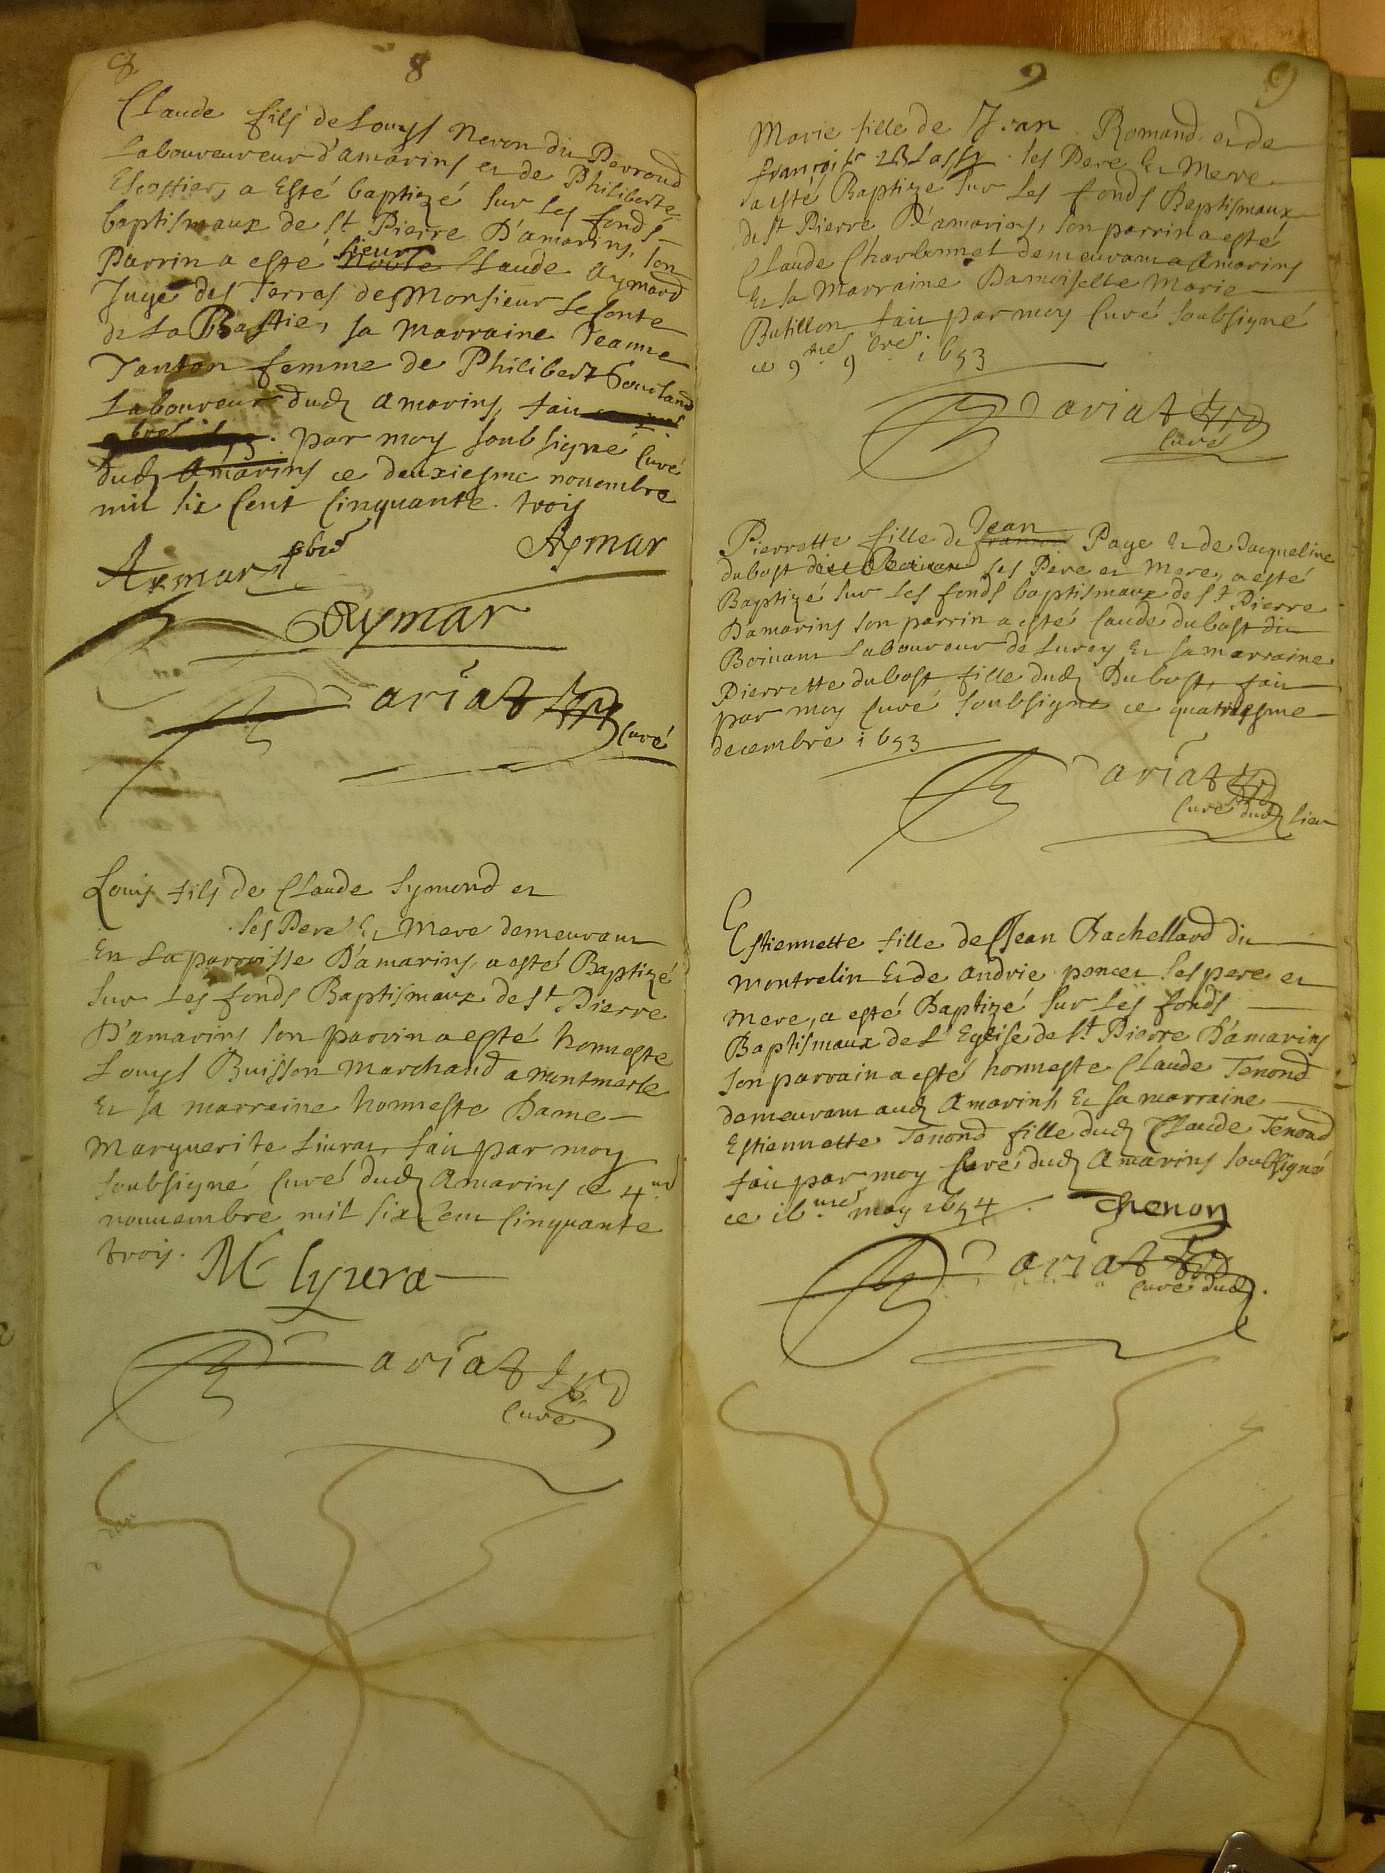 8 8
Claude fils de Louys Neron du Perroud
Laboureureur d'amarins et de Philiberte
Escossier, a Esté baptizé sur les fonds
baptismaux de St Pierre D'amarins, son
Parrin a esté sieur Claude Aymard
Juge des Terres de Monsieur Le Conte
de La Bastie, sa marraine Jeanne
Tanton femme de Philibert
Laboureur dud Amarins, fait
par moy soubsigné Curé
dud Amarins ce deuxiesme nouembre
mil six Cent Cinquante trois
Aymar
Aymard pbre
Aymar
Dariat
Curé
Louis fils de Claude Symond et
ses Pere Et Mere demeurant
En La parroisse D'amarins, a esté Baptizé
sur Les fonds Baptismaux de St Pierre
D'amarins son parrin a esté honneste
Louys Buisson Marchand a montmerle
Et sa marreine honneste Dame
Marguerite Liurat, fait par moy
soubsigné Curé dud Amarins ce 4me
nouuembre mil six Cent Cinquante
trois.
M Lyura
Dariat
Curé
9 9
Marie fille de Jean Romand et de
françoise ses Pere Et Mere
a esté Baptize sur Les fonds Baptismaux
de St Pierre D'amarins, son parrin a esté
Claude Charbonnet demeurant a Amarins
Et sa Marraine Damoiselle Marie
Butillon, fait par moy Curé soubsigné
ce 9me 9bre 1653
Dariat
Curé
Pierrette fille de Jean Page Et de Jacqueline
dubost ses Pere et Mere, a esté
Baptizé sur Les fonds baptismaux de St Pierre
D'amarins son parrin a esté Caude dubost du
Boiuant Laboureur de Lurcy Et sa marraine
Pierrette dubost fille dud Dubost, fait
par moy Curé soubsigné ce quatriesme
decembre 1653
Dariat
Curé dud lieu
Estiennette fille de Jean Bachellard du
montrelin Et de andrie poncet ses pere et
mere, a esté Baptizé sur Les fonds
Baptismaux de L'Eglise de St Pierre D'amarins
son parrain a esté honneste Claude Tenond
demeurant aud Amarins Et sa marraine
Estiennette Tenond fille dud Claude Tenond
fait par moy Curé dud Amarins soubsigné
ce 16me may 1654
Thenon
Dariat
Curé dud.